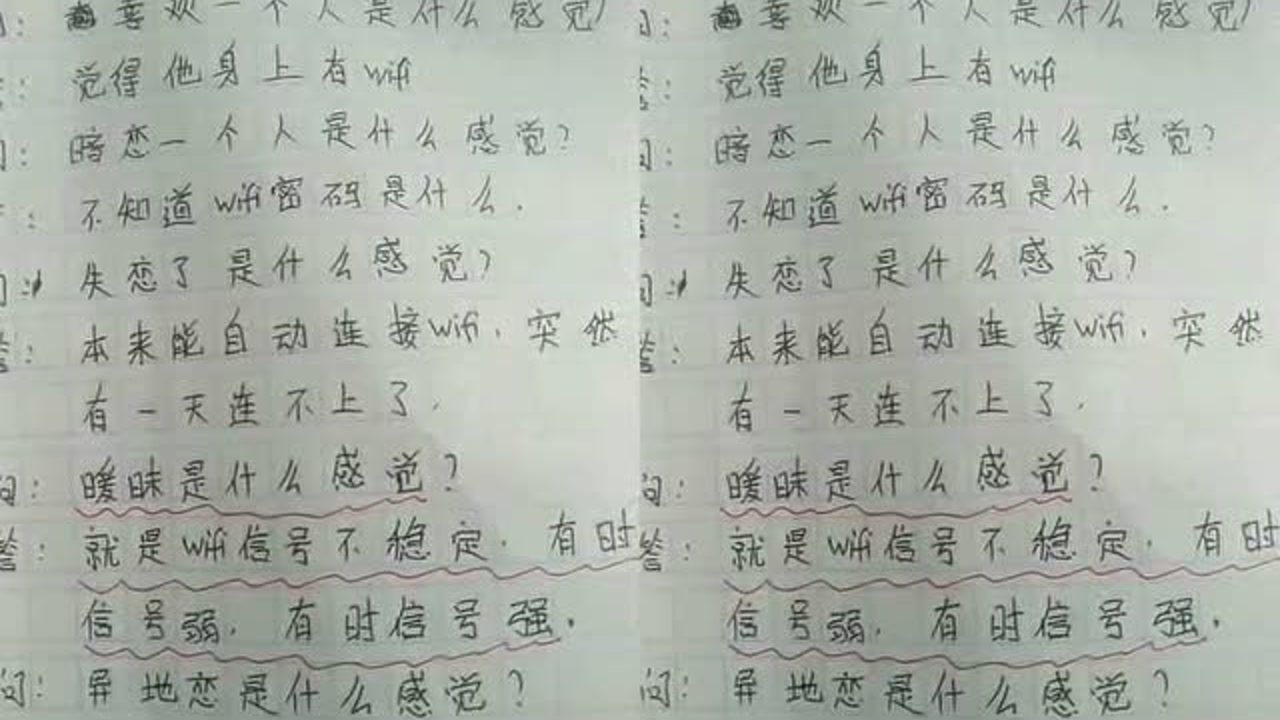 问: 喜欢一个人是什么感觉?
答: 觉得他身上有wifi
问: 暗恋一个人是什么感觉?
答: 不知道wifi密码是什么.
问: 失恋了是什么感觉?
答: 本来能自动连接wifi.突然
有一天连不上了.
问: 暧昧是什么感觉?
答: 就是wifi信号不稳定.有时
信号弱.有时信号强.
问: 异地恋是什么感觉?
问: 喜欢一个人是什么感觉?
答: 觉得他身上有wifi
问: 暗恋一个人是什么感觉?
答: 不知道wifi密码是什么.
问: 失恋了是什么感觉?
答: 本来能自动连接wifi.突然
有一天连不上了.
问: 暧昧是什么感觉?
答: 就是wifi信号不稳定.有时
信号弱.有时信号强.
问: 异地恋是什么感觉?